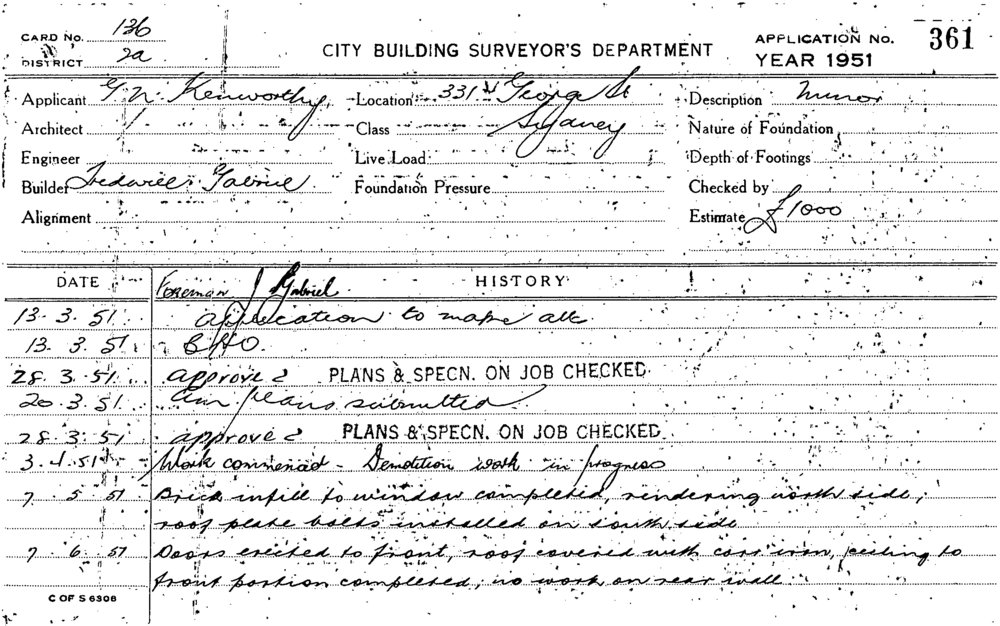 CARD No. 136
DISTRICT 2a
CITY BUILDING SURVEYOR'S DEPARTMENT
APPLICATION No. 361
YEAR 1951
Applicant G. N. Kenworthy
Location 331 George St Sydney
Description Minor
Architect
Class
Nature of Foundation
Engineer
Live Load
Depth of Footings
Builder Gabriel
Foundation Pressure
Checked by
Alignment
Estimate £1000
DATE HISTORY
Foreman J Gabriel
13.3.51 application to make alt.
13.3.51
28.3.51 approved PLANS & SPECN. ON JOB CHECKED
20.3.51 am plans submitted
28.3.51 approved PLANS & SPECN. ON JOB CHECKED
3.4.51 Work commenced - Demolition work in progress
7.5.51 Brick infill to window completed, rendering north side,
roof plate bolts installed on south side
7.6.51 Doors erected to front, roof covered with corr iron, ceiling to
front portion completed, no work on rear wall
C OF S 6308